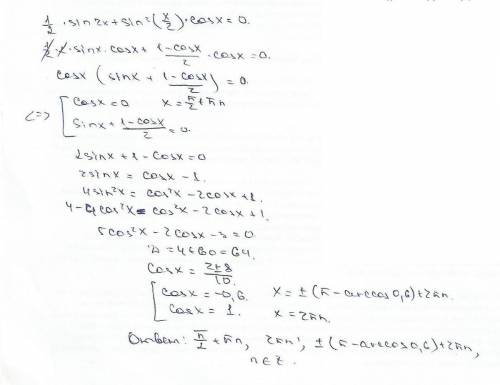 1/2 · sin2x + sin²(x/2) · cosx = 0.
1/2 · 2 · sinx · cosx + (1-cosx)/2 · cosx = 0.
cosx (sinx + (1-cosx)/2) = 0.
<=> [ cosx = 0   x = π/2 + πn
sinx + (1-cosx)/2 = 0.
2sinx + 1 - cosx = 0
2sinx = cosx - 1.
4sin²x = cos²x - 2cosx + 1.
4 - 4cos²x = cos²x - 2cosx + 1.
5cos²x - 2cosx - 3 = 0.
D = 4 + 60 = 64.
cosx = (2±8)/10.
[ cosx = -0,6.   x = ±(π - arccos0,6) + 2πn.
cosx = 1.   x = 2πn.
Ответ: π/2 + πn, 2πn, ±(π - arccos0,6) + 2πn,
n∈Z.